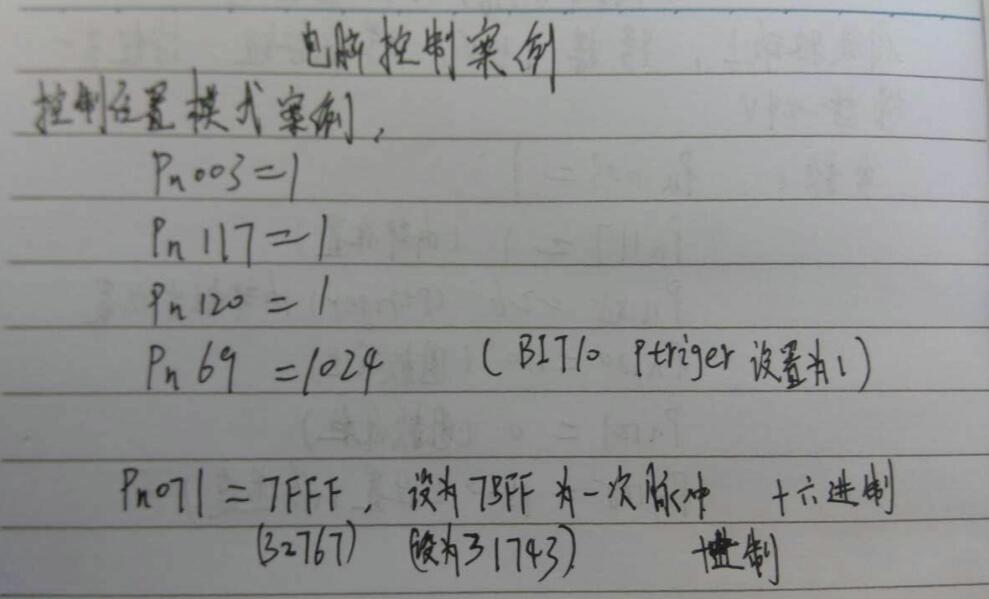 电脑控制案例
控制位置模式案例,
Pn003=1
Pn117=1
Pn120=1
Pn69=1024 (BIT10 Ptriger 设置为1)
Pn071=7FFF, 设为7BFF为一次脉冲 十六进制
(32767) (设为31743) 十进制